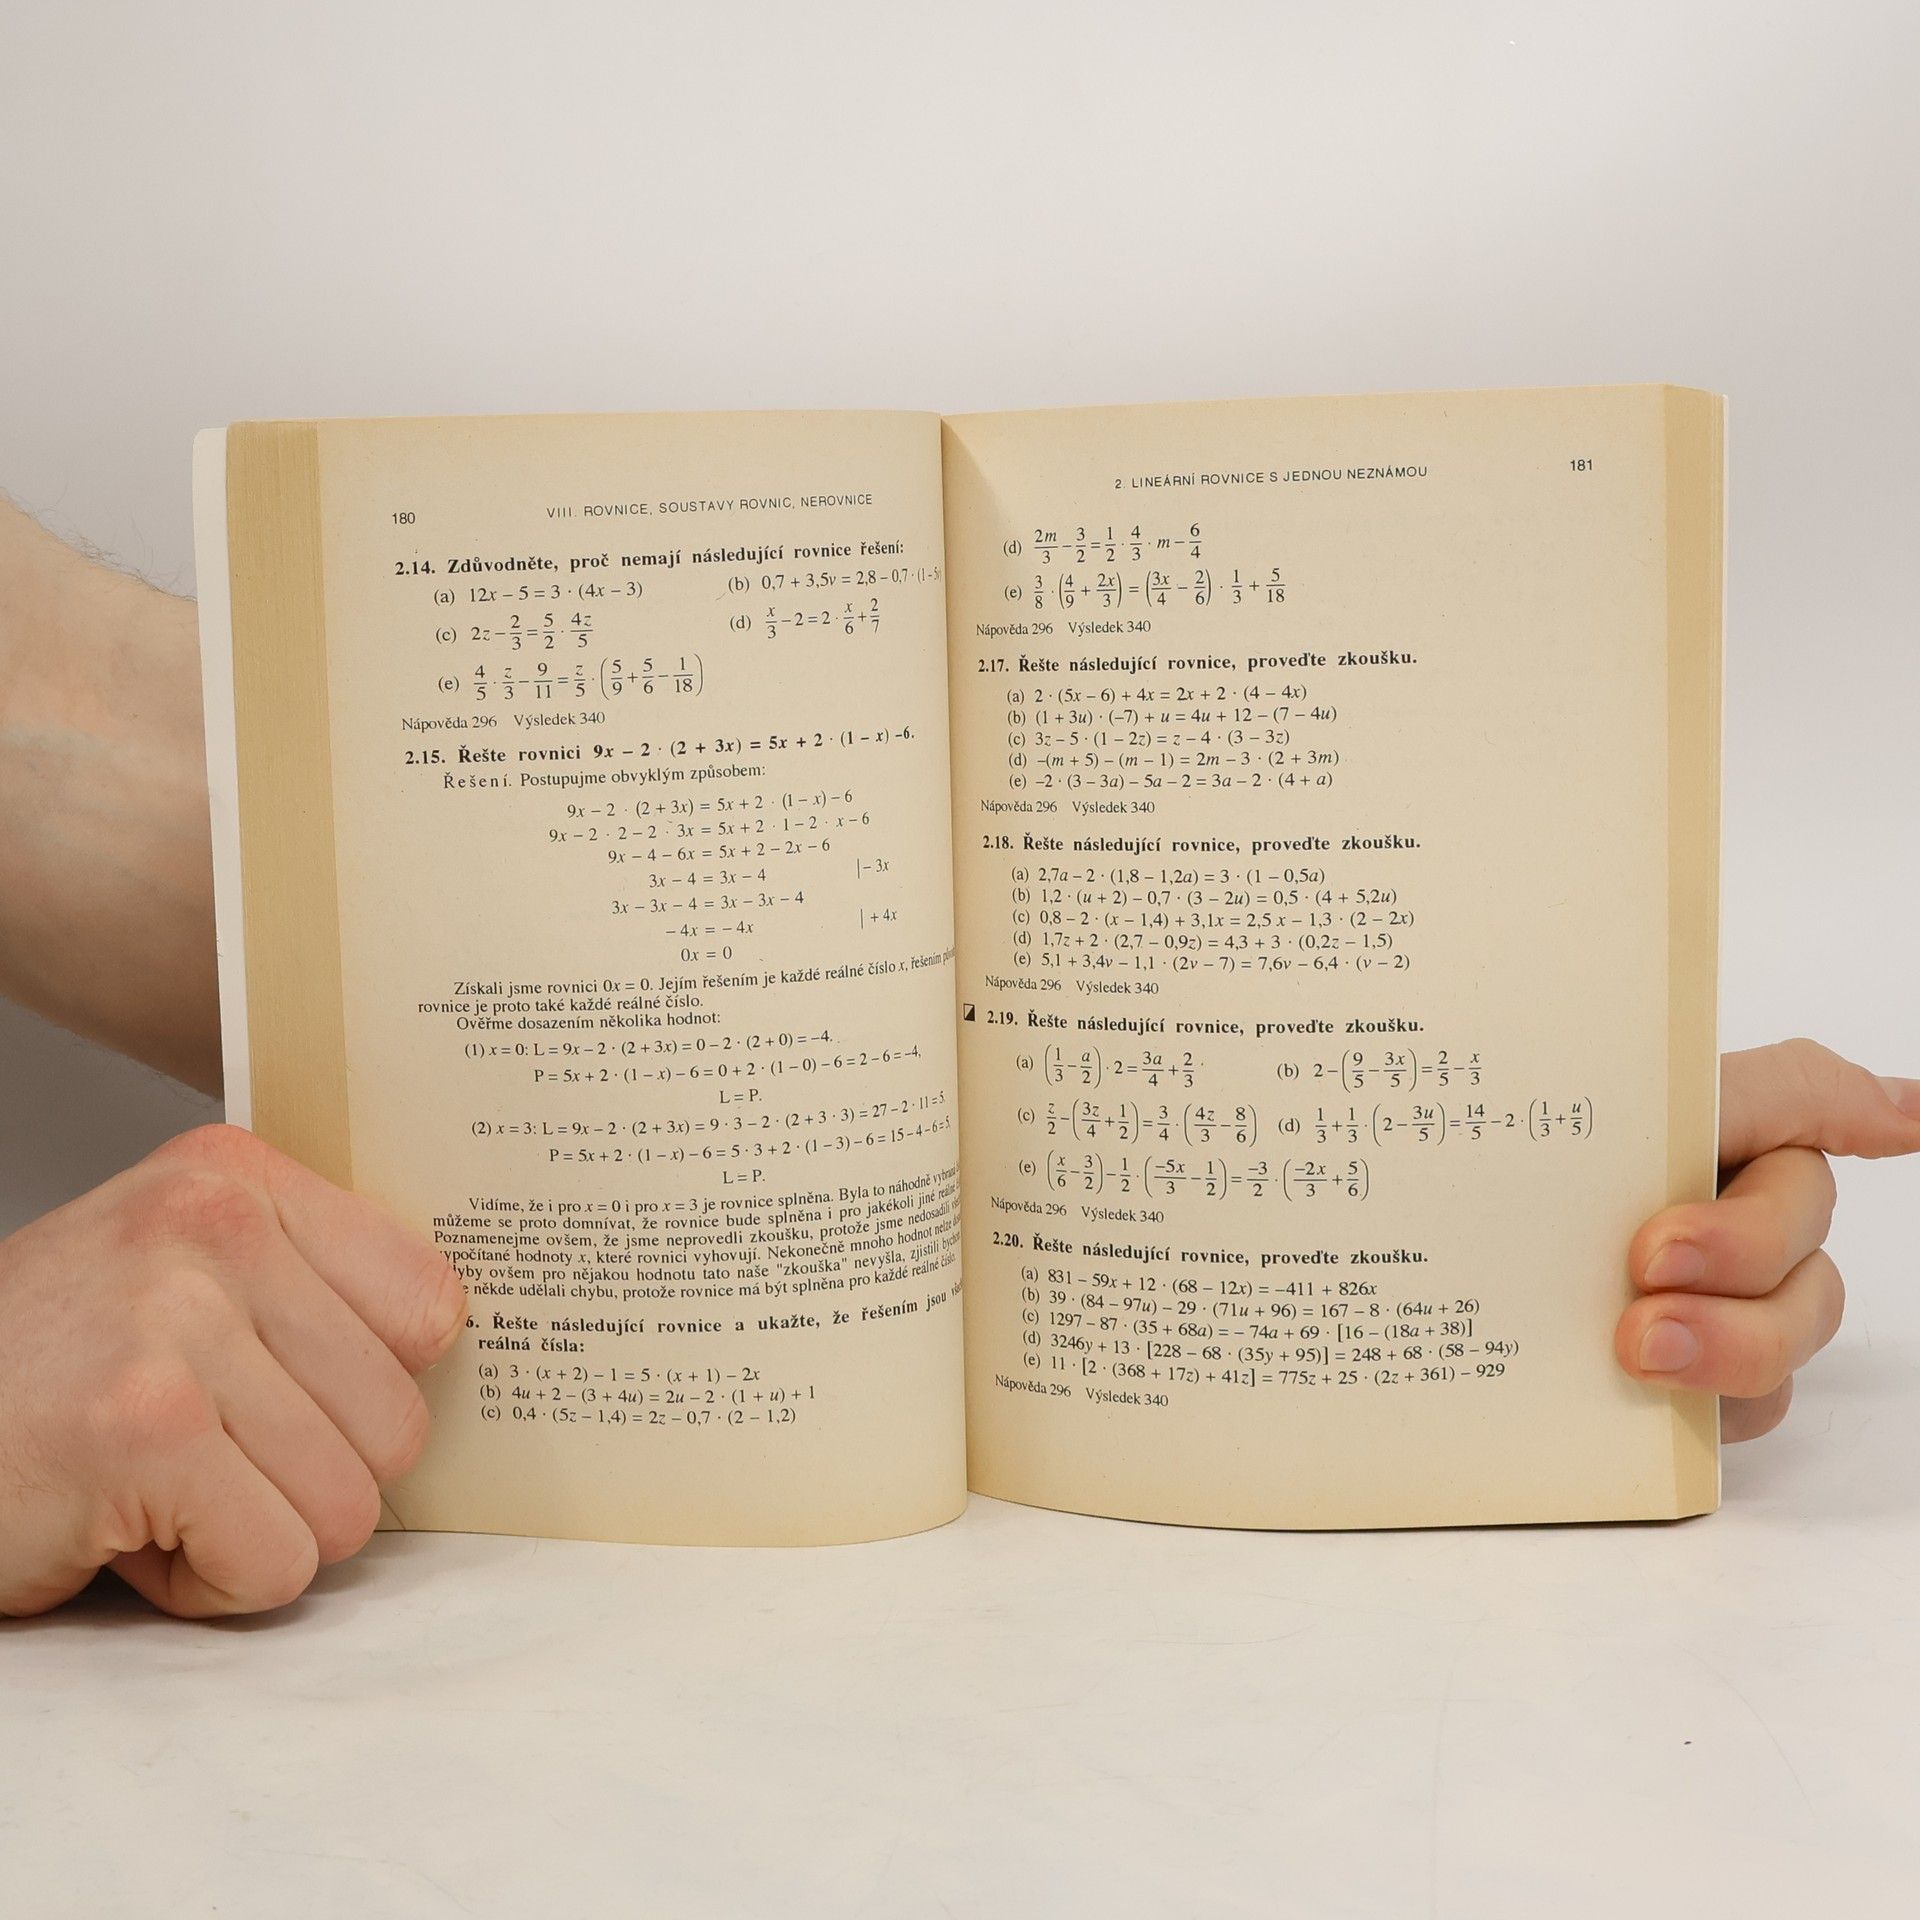 180 VIII. ROVNICE, SOUSTAVY ROVNIC, NEROVNICE
2.14. Zdůvodněte, proč nemají následující rovnice řešení:
(a) 12x − 5 = 3 · (4x − 3) (b) 0,7 + 3,5v = 2,8 − 0,7 · (1 − 5v)
(c) 2z − 2/3 = 5/2 · 4z/5 (d) x/3 − 2 = 2 · x/6 + 2/7
(e) 4/5 · z/3 − 9/11 = z/5 · (5/9 + 5/6 − 1/18)
Nápověda 296 Výsledek 340
2.15. Řešte rovnici 9x − 2 · (2 + 3x) = 5x + 2 · (1 − x) −6.
Řešení. Postupujme obvyklým způsobem:
9x − 2 · (2 + 3x) = 5x + 2 · (1 − x) − 6
9x − 2 · 2 − 2 · 3x = 5x + 2 · 1 − 2 · x − 6
9x − 4 − 6x = 5x + 2 − 2x − 6
3x − 4 = 3x − 4 |− 3x
3x − 3x − 4 = 3x − 3x − 4
− 4x = − 4x | + 4x
0x = 0
Získali jsme rovnici 0x = 0. Jejím řešením je každé reálné číslo x, řešením
rovnice je proto také každé reálné číslo.
Ověřme dosazením několika hodnot:
(1) x = 0: L = 9x − 2 · (2 + 3x) = 0 − 2 · (2 + 0) = −4.
P = 5x + 2 · (1 − x) − 6 = 0 + 2 · (1 − 0) − 6 = 2 − 6 = −4,
L = P.
(2) x = 3: L = 9x − 2 · (2 + 3x) = 9 · 3 − 2 · (2 + 3 · 3) = 27 − 2 · 11 = 5,
P = 5x + 2 · (1 − x) − 6 = 5 · 3 + 2 · (1 − 3) − 6 = 15 − 4 − 6 = 5,
L = P.
Vidíme, že i pro x = 0 i pro x = 3 je rovnice splněna. Byla to náhodně
můžeme se proto domnívat, že rovnice bude splněna i pro jakékoli jiné
Poznamenejme ovšem, že jsme neprovedli zkoušku, protože jsme nedosadili
vypočítané hodnoty x, které rovnici vyhovují. Nekonečně mnoho hodnot nelze
dyby ovšem pro nějakou hodnotu tato naše "zkouška" nevyšla, zjistili
někde udělali chybu, protože rovnice má být splněna pro každé reálné číslo.
6. Řešte následující rovnice a ukažte, že řešením jsou
reálná čísla:
(a) 3 · (x + 2) − 1 = 5 · (x + 1) − 2x
(b) 4u + 2 − (3 + 4u) = 2u − 2 · (1 + u) + 1
(c) 0,4 · (5z − 1,4) = 2z − 0,7 · (2 − 1,2)
2. LINEÁRNÍ ROVNICE S JEDNOU NEZNÁMOU 181
(d) 2m/3 − 3/2 = 1/2 · 4/3 · m − 6/4
(e) 3/8 · (4/9 + 2x/3) = (3x/4 − 2/6) · 1/3 + 5/18
Nápověda 296 Výsledek 340
2.17. Řešte následující rovnice, proveďte zkoušku.
(a) 2 · (5x − 6) + 4x = 2x + 2 · (4 − 4x)
(b) (1 + 3u) · (−7) + u = 4u + 12 − (7 − 4u)
(c) 3z − 5 · (1 − 2z) = z − 4 · (3 − 3z)
(d) −(m + 5) − (m − 1) = 2m − 3 · (2 + 3m)
(e) −2 · (3 − 3a) − 5a − 2 = 3a − 2 · (4 + a)
Nápověda 296 Výsledek 340
2.18. Řešte následující rovnice, proveďte zkoušku.
(a) 2,7a − 2 · (1,8 − 1,2a) = 3 · (1 − 0,5a)
(b) 1,2 · (u + 2) − 0,7 · (3 − 2u) = 0,5 · (4 + 5,2u)
(c) 0,8 − 2 · (x − 1,4) + 3,1x = 2,5 x − 1,3 · (2 − 2x)
(d) 1,7z + 2 · (2,7 − 0,9z) = 4,3 + 3 · (0,2z − 1,5)
(e) 5,1 + 3,4v − 1,1 · (2v − 7) = 7,6v − 6,4 · (v − 2)
Nápověda 296 Výsledek 340
2.19. Řešte následující rovnice, proveďte zkoušku.
(a) (1/3 − a/2) · 2 = 3a/4 + 2/3 (b) 2 − (9/5 − 3x/5) = 2/5 − x/3
(c) z/2 − (3z/4 + 1/2) = 3/4 · (4z/3 − 8/6) (d) 1/3 + 1/3 · (2 − 3u/5) = 14/5 − 2 · (1/3 + u/5)
(e) (x/6 − 3/2) − 1/2 · (−5x/3 − 1/2) = −3/2 · (−2x/3 + 5/6)
Nápověda 296 Výsledek 340
2.20. Řešte následující rovnice, proveďte zkoušku.
(a) 831 − 59x + 12 · (68 − 12x) = −411 + 826x
(b) 39 · (84 − 97u) − 29 · (71u + 96) = 167 − 8 · (64u + 26)
(c) 1297 − 87 · (35 + 68a) = − 74a + 69 · [16 − (18a + 38)]
(d) 3246y + 13 · [228 − 68 · (35y + 95)] = 248 + 68 · (58 − 94y)
(e) 11 · [2 · (368 + 17z) + 41z] = 775z + 25 · (2z + 361) − 929
Nápověda 296 Výsledek 340